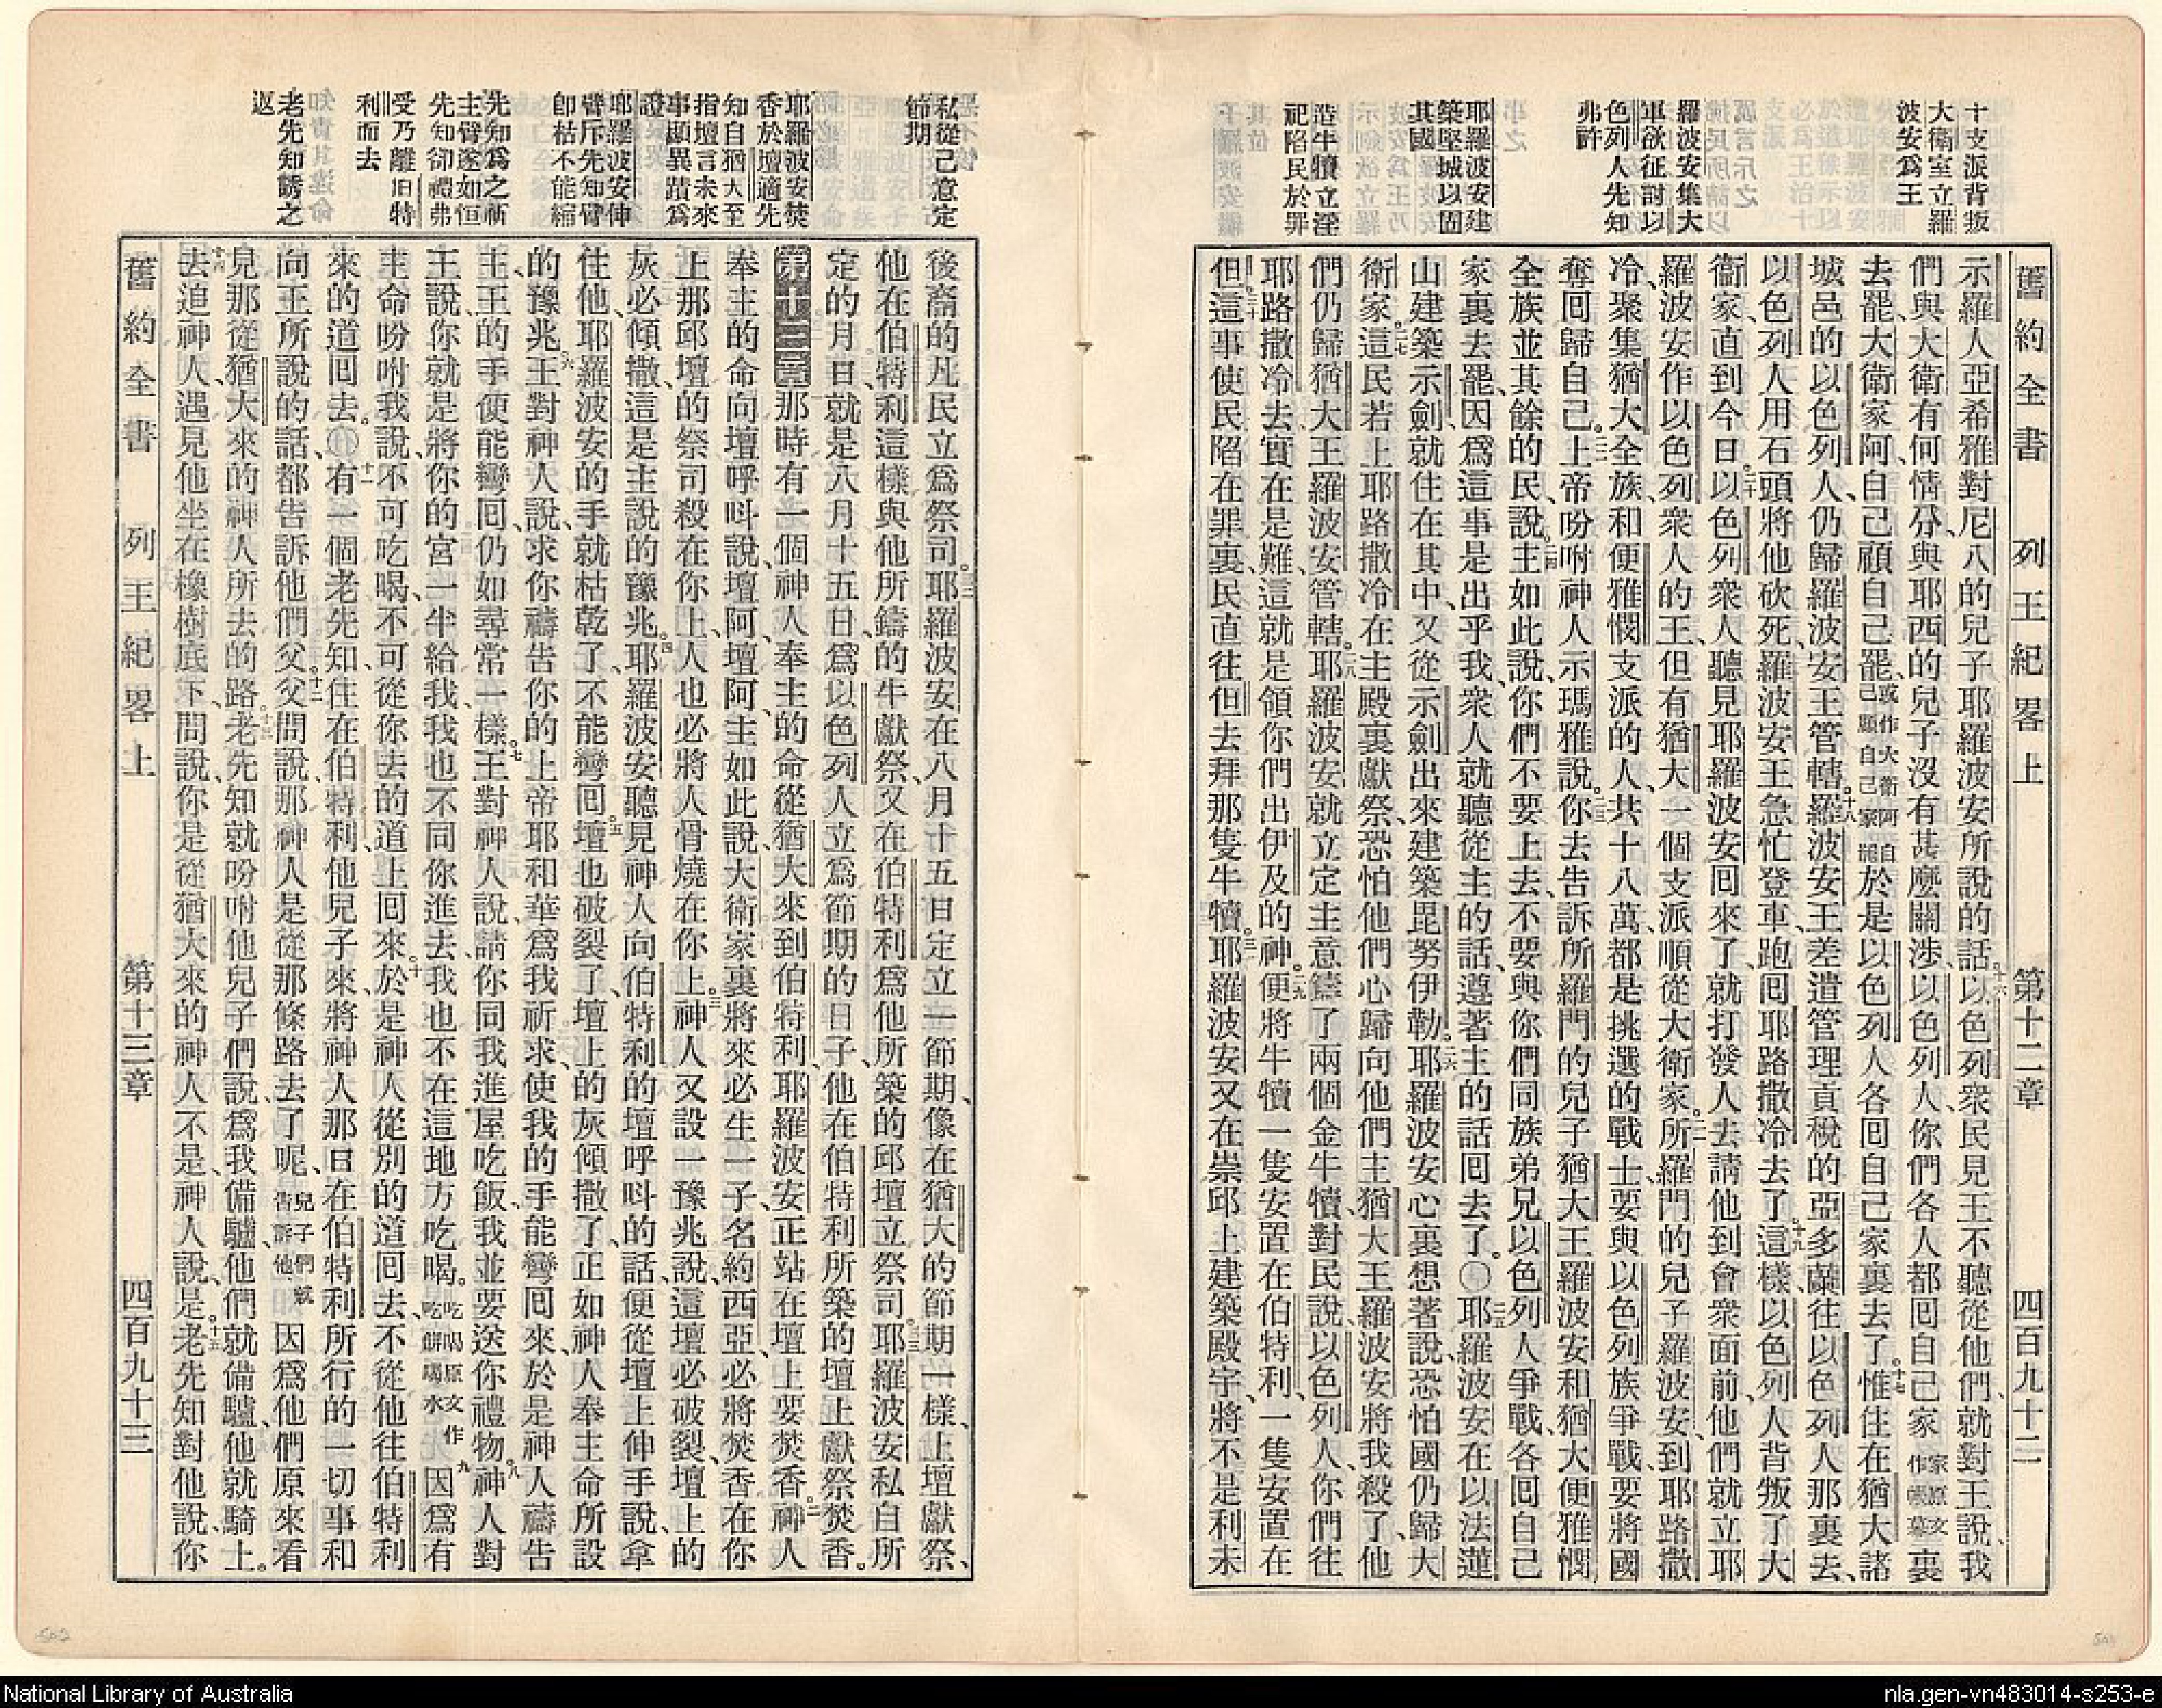 舊約全書 列王紀畧上 第十二章 四百九十二
十支派背叛
大衛室立羅
波安爲王
羅波安集大
軍欲征討以
色列人先知
弗許
耶羅波安建
築堅城以固
其國
造牛犢立淫
祀陷民於罪
示羅人亞希雅對尼八的兒子耶羅波安所說的話以色列衆民見王不聽從他們、就對王說、我
們與大衛有何情分、與耶西的兒子沒有甚麽關涉、以色列人、你們各人都回自己家家原文作帳幕裏
去罷、大衛家阿、自己顧自己罷、或作大衛阿自己顧自己家罷於是以色列人各回自己家裏去了。惟住在猶大諸
城邑的以色列人、仍歸羅波安王管轄。羅波安王差遣管理貢稅的亞多蘭往以色列人那裏去、
以色列人用石頭將他砍死、羅波安王急忙登車、跑回耶路撒冷去了。這樣以色列人背叛了大
衞家、直到今日。以色列衆人聽見耶羅波安回來了、就打發人去請他到會衆面前、他們就立耶
羅波安作以色列衆人的王、但有猶大一個支派順從大衛家。所羅門的兒子羅波安、到耶路撒
冷、聚集猶大全族、和便雅憫支派的人、共十八萬、都是挑選的戰士、要與以色列族爭戰、要將國
奪回歸自己。上帝吩咐神人示瑪雅說。你去告訴所羅門的兒子猶大王羅波安和猶大便雅憫
全族並其餘的民、說、主如此說、你們不要上去、不要與你們同族弟兄以色列人爭戰、各回自己
家裏去罷、因爲這事是出乎我、衆人就聽從主的話、遵著主的話回去了。〇耶羅波安在以法蓮
山建築示劍、就住在其中、又從示劍出來建築毘努伊勒。耶羅波安心裏想著說、恐怕國仍歸大
衛家、這民若上耶路撒冷、在主殿裏獻祭、恐怕他們心歸向他們主、猶大王羅波安、將我殺了、他
們仍歸猶大王羅波安管轄。耶羅波安就立定主意、鑄了兩個金牛犢、對民說、以色列人、你們往
耶路撒冷去、實在是難、這就是領你們出伊及的神。便將牛犢一隻安置在伯特利、一隻安置在
但、這事使民陷在罪裏、民直往但去拜那隻牛犢。耶羅波安又在崇邱上建築殿宇、將不是利未
舊約全書 列王紀畧上 第十三章 四百九十三
私從己意定
節期
耶羅波安焚
香於壇適先
知自猶大至
指壇言未來
事顯異蹟爲
證
耶羅波安伸
臂斥先知臂
卽枯不能縮
先知爲之祈
主臂遂如恒
先知卻禮弗
受乃離伯特
利而去
老先知誘之
返
後裔的凡民立爲祭司。耶羅波安在八月十五日定立一節期、像在猶大的節期一樣、上壇獻祭、
他在伯特利這樣與他所鑄的牛獻祭、又在伯特利爲他所築的邱壇立祭司、耶羅波安私自所
定的月日、就是八月十五日、爲以色列人立爲節期的日子、他在伯特利所築的壇上獻祭焚香。
第十三章那時有一個神人奉主的命從猶大來到伯特利、耶羅波安正站在壇上要焚香。神人
奉主的命向壇呼呌說、壇阿、壇阿、主如此說、大衛家裏將來必生一子、名約西亞、必將焚香在你
上那邱壇的祭司殺在你上、人也必將人骨燒在你上。神人又設一豫兆說、這壇必破裂、壇上的
灰必傾撒、這是主說的豫兆。耶羅波安聽見神人向伯特利的壇呼呌的話、便從壇上伸手說、拿
住他、耶羅波安的手就枯乾了、不能彎回。壇也破裂了、壇上的灰傾撒了、正如神人奉主命所設
的豫兆。王對神人說、求你禱告你的上帝耶和華、爲我祈求、使我的手能彎回來、於是神人禱告
主、王的手便能彎回、仍如尋常一樣。王對神人說、請你同我進屋吃飯、我並要送你禮物。神人對
王說、你就是將你的宮一半給我、我也不同你進去、我也不在這地方吃喝。吃喝原文作吃餅喝水因爲有
主命吩咐我說、不可吃喝、不可從你去的道上回來。於是神人從別的道回去、不從他往伯特利
來的道回去。〇有一個老先知、住在伯特利、他兒子來、將神人那日在伯特利所行的一切事和
向王所說的話、都告訴他們父。父問說、那神人是從那條路去了呢、兒子們就告訴他因爲他們原來看
見那從猶大來的神人所去的路。老先知就吩咐他兒子們說、爲我備驢、他們就備驢、他就騎上。
去追神人、遇見他坐在橡樹底下、問說、你是從猶大來的神人不是、神人說、是。老先知對他說、你
National Library of Australia
nla.gen-vn483014-s253-e